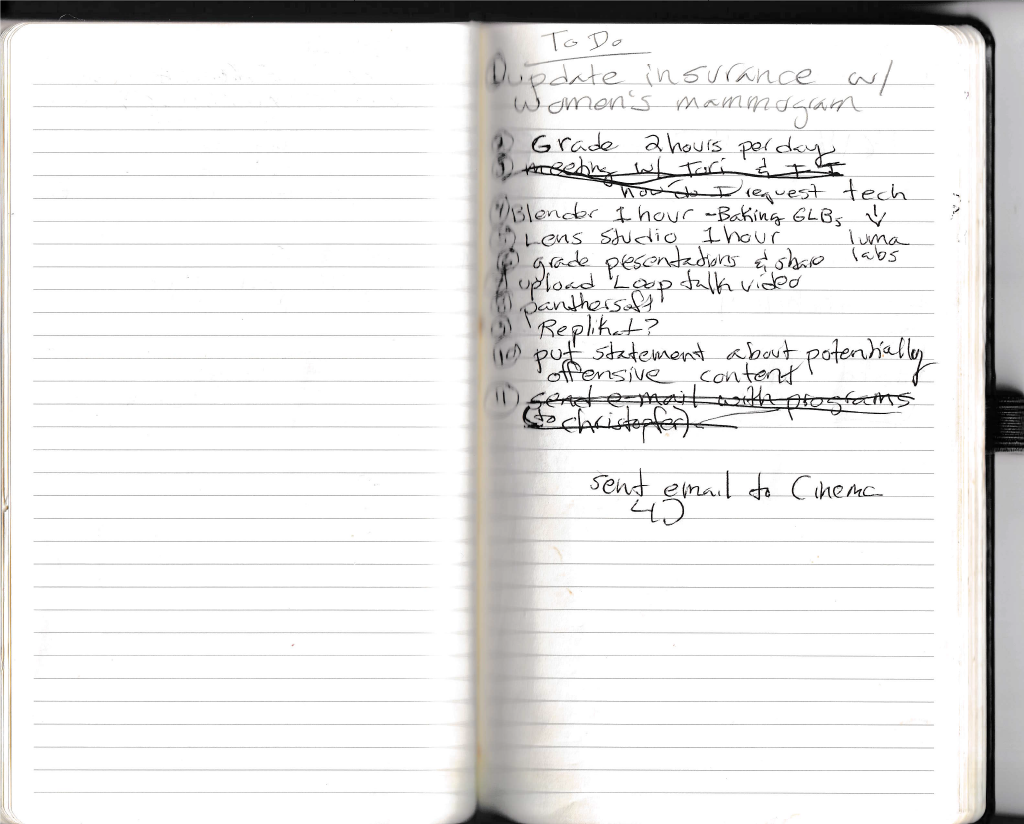 To Do
1) update insurance w/
women's mammogram
2) Grade 2 hours per day
3) meeting w/ Tori & II
how do I request tech
4) Blender 1 hour - Baking GLBs ↓
5) Lens studio 1 hour luma
6) grade pesentations & share labs
7) upload Loop talk video
8) panthersoft
9) Replikat?
10) put statement about potentially
offensive content
11) send e-mail with programs
(to christopfer)
sent email to Cinema
4D